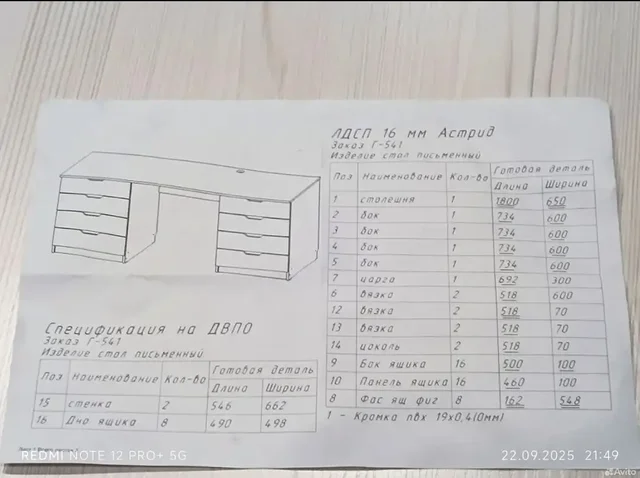 ЛДСП 16 мм Астрид
Заказ Г-541
Изделие стол письменный
Поз Наименование Кол-во Готовая деталь
Длина Ширина
1 столешня 1 1800 650
2 бок 1 734 600
3 бок 1 734 600
4 бок 1 734 600
5 бок 1 734 600
7 царга 1 692 300
6 вязка 2 518 600
12 вязка 2 518 70
13 вязка 2 518 70
14 цоколь 2 518 70
9 Бок ящика 16 500 100
10 Панель ящика 16 460 100
8 Фас ящ фиг 8 162 548
1 - Кромка пвх 19х0,4(мм)
Спецификация на ДВПО
Заказ Г-541
Изделие стол письменный
Поз Наименование Кол-во Готовая деталь
Длина Ширина
15 стенка 2 546 662
16 Дно ящика 8 490 498
REDMI NOTE 12 PRO+ 5G
22.09.2025 21:49
Avito